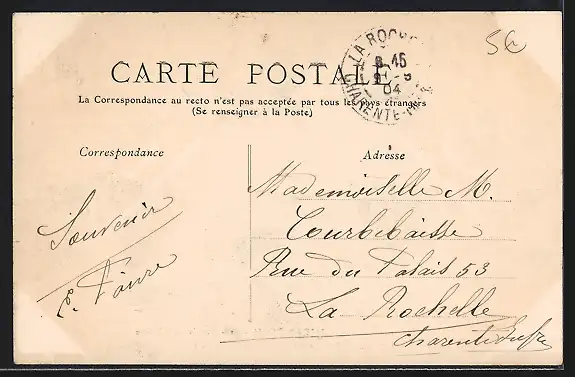 5€
LA ROCH
8 45
9 -9
04
CHARENTE-INF
CARTE POSTALE
La Correspondance au recto n'est pas acceptée par tous les pays étrangers
(Se renseigner à la Poste)
Correspondance
Adresse
Souvenir
Mademoiselle M.
Courbebaisse
Rue du Palais 53
La Rochelle
Charente Infre